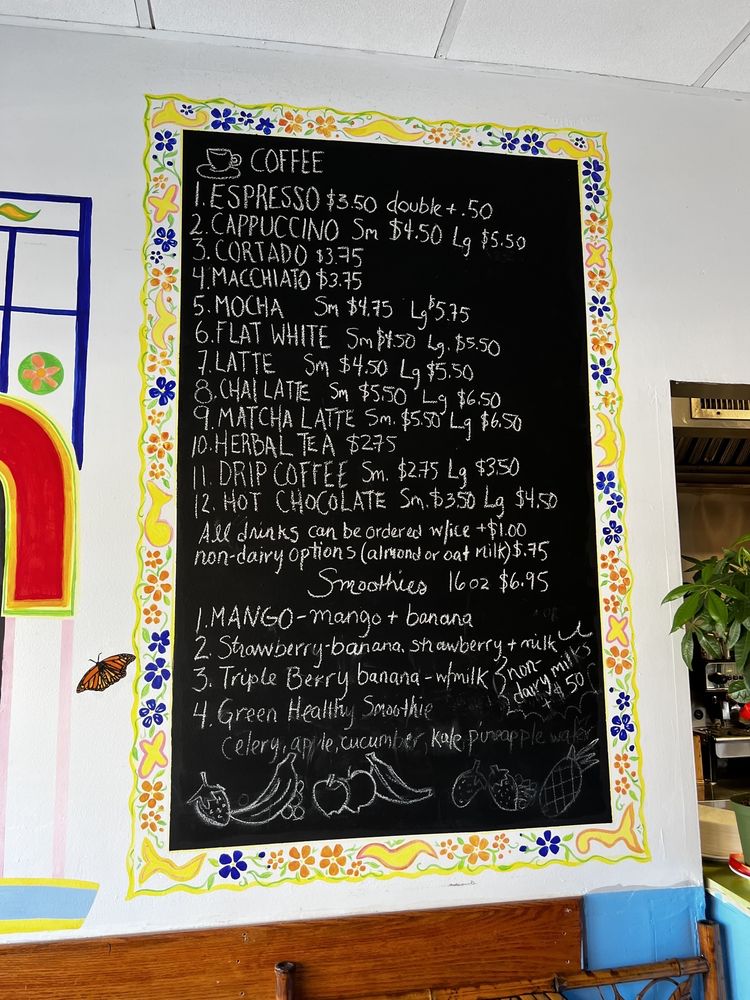 COFFEE
1. ESPRESSO $3.50 double + .50
2. CAPPUCCINO Sm $4.50 Lg $5.50
3. CORTADO $3.75
4. MACCHIATO $3.75
5. MOCHA Sm $4.75 Lg $5.75
6. FLAT WHITE Sm $4.50 Lg. $5.50
7. LATTE Sm $4.50 Lg $5.50
8. CHAI LATTE Sm $5.50 Lg $6.50
9. MATCHA LATTE Sm. $5.50 Lg $6.50
10. HERBAL TEA $2.75
11. DRIP COFFEE Sm. $2.75 Lg $3.50
12. HOT CHOCOLATE Sm. $3.50 Lg $4.50
All drinks can be ordered w/ice +$1.00
non-dairy options (almond or oat milk) $.75
Smoothies 16oz $6.95
1. MANGO - mango + banana
2. Strawberry-banana, strawberry + milk
3. Triple Berry banana - w/milk
non-
dairy milks
+ $.50
4. Green Healthy Smoothie
celery, apple, cucumber, kale, pineapple water